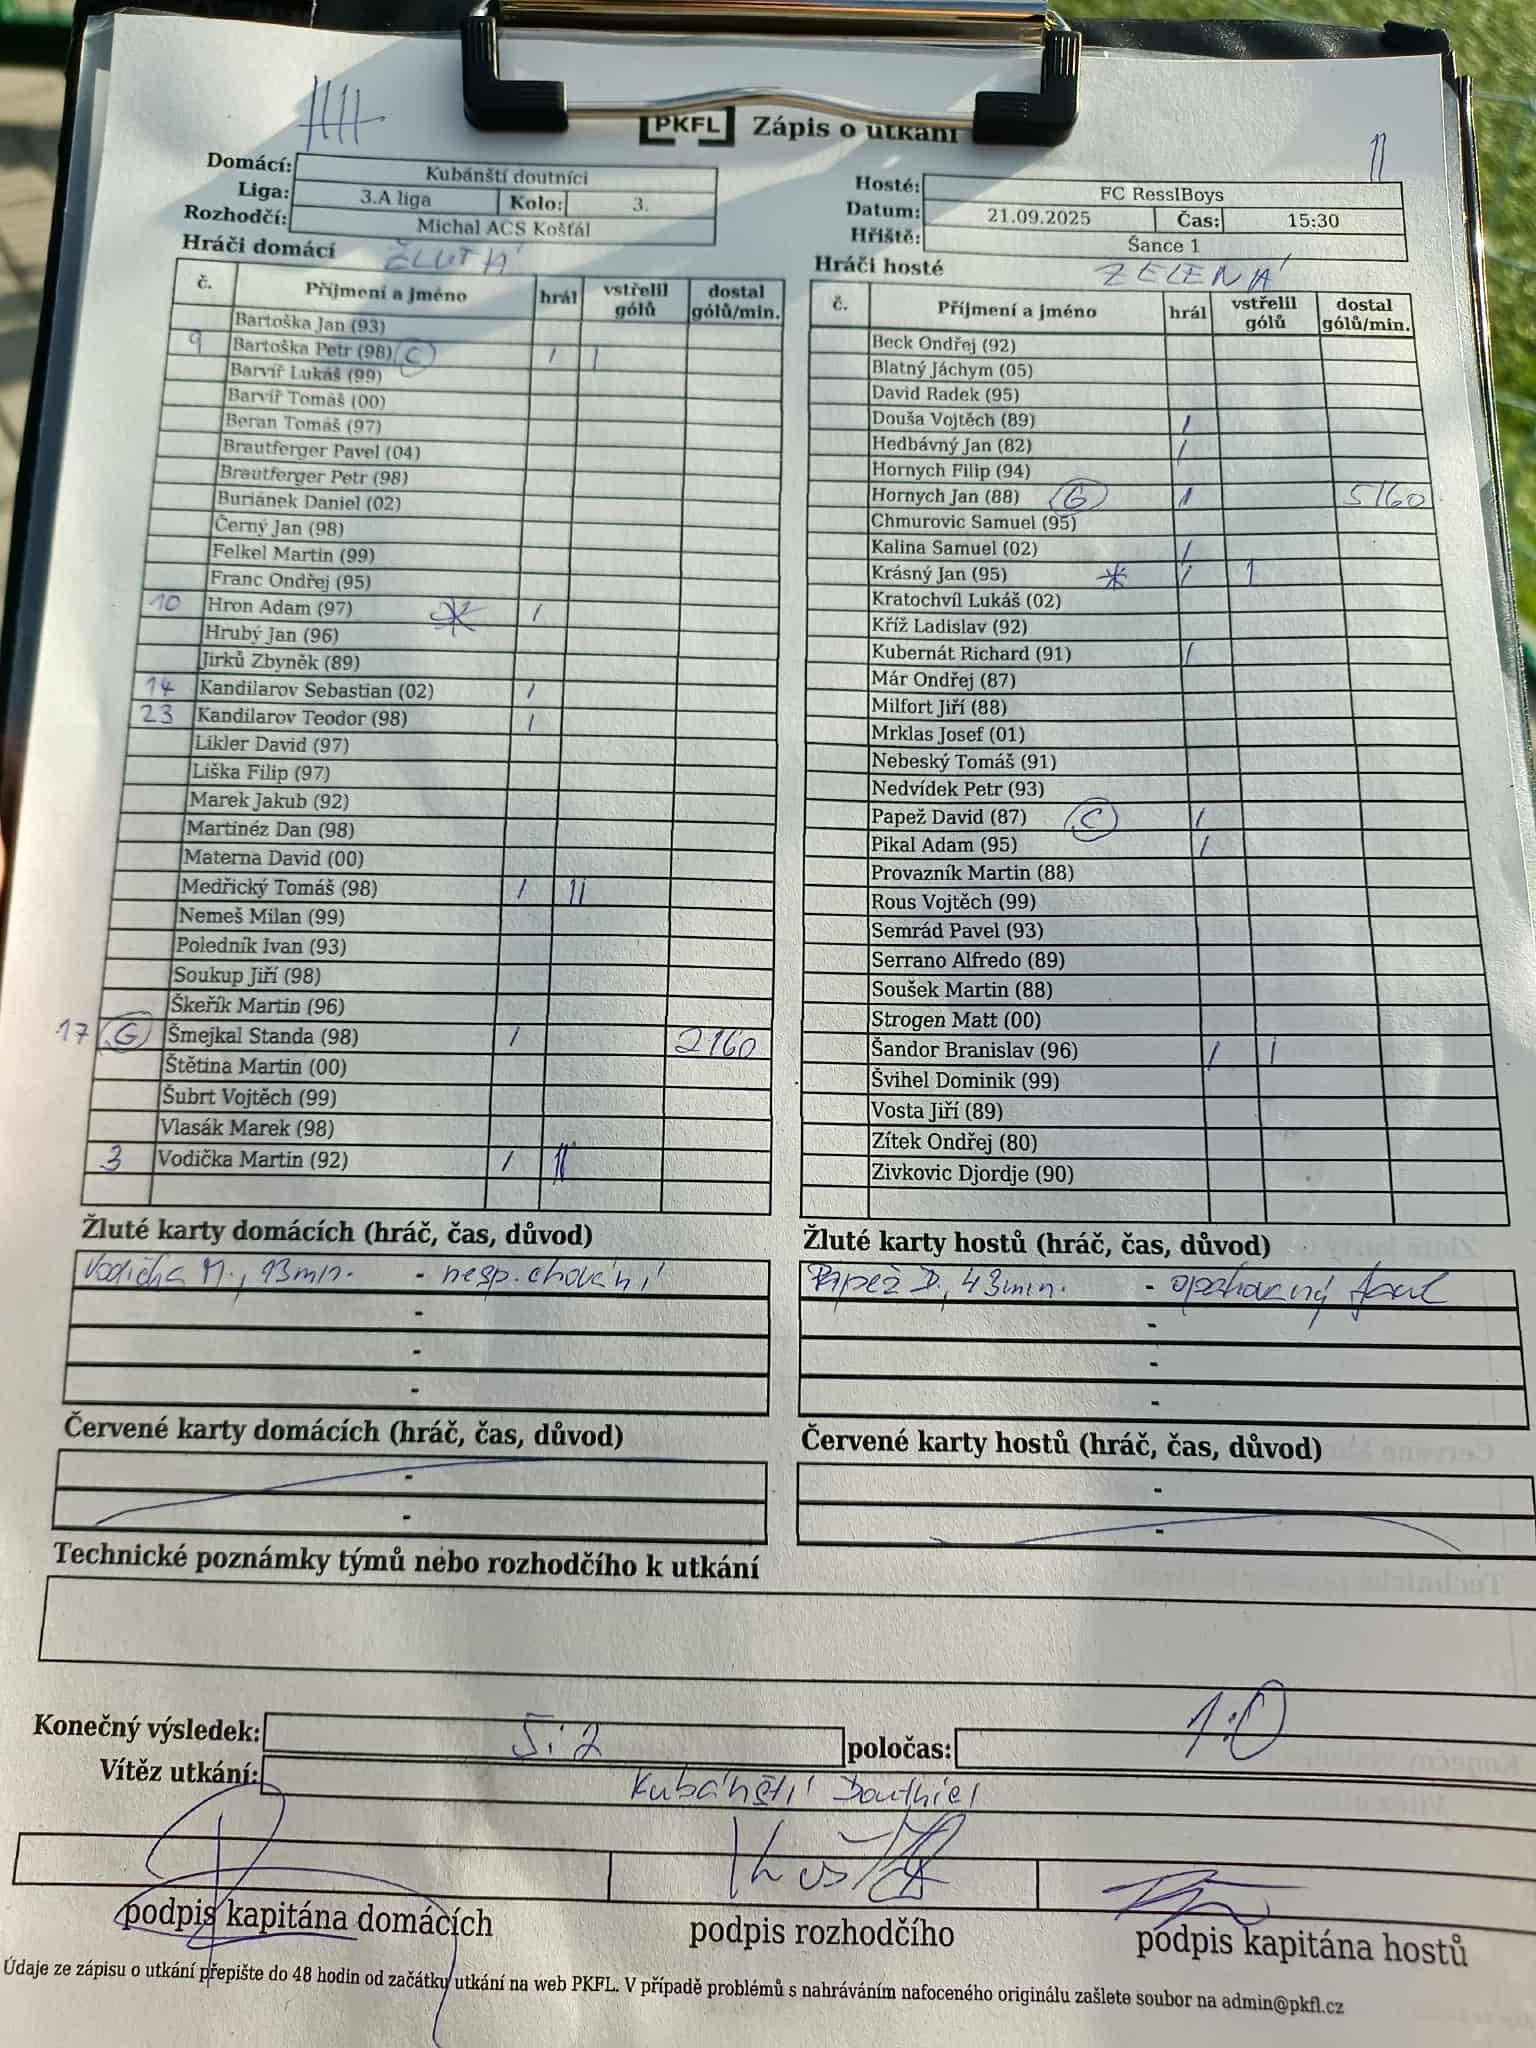 PKFL Zápis o utkání
Domácí: Kubánští doutníci
Liga: 3.A liga Kolo: 3.
Rozhodčí: Michal ACS Košťál
Hosté: FC ResslBoys
Datum: 21.09.2025 Čas: 15:30
Hřiště: Šance 1
Hráči domácí ŽLUTÁ
č. Příjmení a jméno hrál vstřelil gólů dostal gólů/min.
Bartoška Jan (93)
9 Bartoška Petr (98) C I I
Barvíř Lukáš (99)
Barvíř Tomáš (00)
Beran Tomáš (97)
Brautferger Pavel (04)
Brautferger Petr (98)
Buriánek Daniel (02)
Černý Jan (98)
Felkel Martin (99)
Franc Ondřej (95)
10 Hron Adam (97) * I
Hrubý Jan (96)
Jirků Zbyněk (89)
14 Kandilarov Sebastian (02) I
23 Kandilarov Teodor (98) I
Likler David (97)
Liška Filip (97)
Marek Jakub (92)
Martinéz Dan (98)
Materna David (00)
Medřický Tomáš (98) I II
Nemeš Milan (99)
Poledník Ivan (93)
Soukup Jiří (98)
Škeřík Martin (96)
17 G Šmejkal Standa (98) I 2/60
Štětina Martin (00)
Šubrt Vojtěch (99)
Vlasák Marek (98)
3 Vodička Martin (92) I II
Hráči hosté ZELENÁ
č. Příjmení a jméno hrál vstřelil gólů dostal gólů/min.
Beck Ondřej (92)
Blatný Jáchym (05)
David Radek (95)
Douša Vojtěch (89) I
Hedbávný Jan (82) I
Hornych Filip (94)
Hornych Jan (88) G I 5/60
Chmurovic Samuel (95)
Kalina Samuel (02) I
Krásný Jan (95) * I 1
Kratochvíl Lukáš (02)
Kříž Ladislav (92)
Kubernát Richard (91) I
Már Ondřej (87)
Milfort Jiří (88)
Mrklas Josef (01)
Nebeský Tomáš (91)
Nedvídek Petr (93)
Papež David (87) C I
Pikal Adam (95) I
Provazník Martin (88)
Rous Vojtěch (99)
Semrád Pavel (93)
Serrano Alfredo (89)
Soušek Martin (88)
Strogen Matt (00)
Šandor Branislav (96) I I
Švihel Dominik (99)
Vosta Jiří (89)
Zítek Ondřej (80)
Zivkovic Djordje (90)
Žluté karty domácích (hráč, čas, důvod)
Vodička M., 13min. - nesp. chování
-
-
-
Žluté karty hostů (hráč, čas, důvod)
Papež D., 43min. - opakovaný faul
-
-
-
Červené karty domácích (hráč, čas, důvod)
-
-
Červené karty hostů (hráč, čas, důvod)
-
-
Technické poznámky týmů nebo rozhodčího k utkání
Konečný výsledek: 5:2 poločas: 1:0
Vítěz utkání: Kubánští Doutníci
podpis kapitána domácích podpis rozhodčího podpis kapitána hostů
Údaje ze zápisu o utkání přepište do 48 hodin od začátku utkání na web PKFL. V případě problémů s nahráváním nafoceného originálu zašlete soubor na admin@pkfl.cz